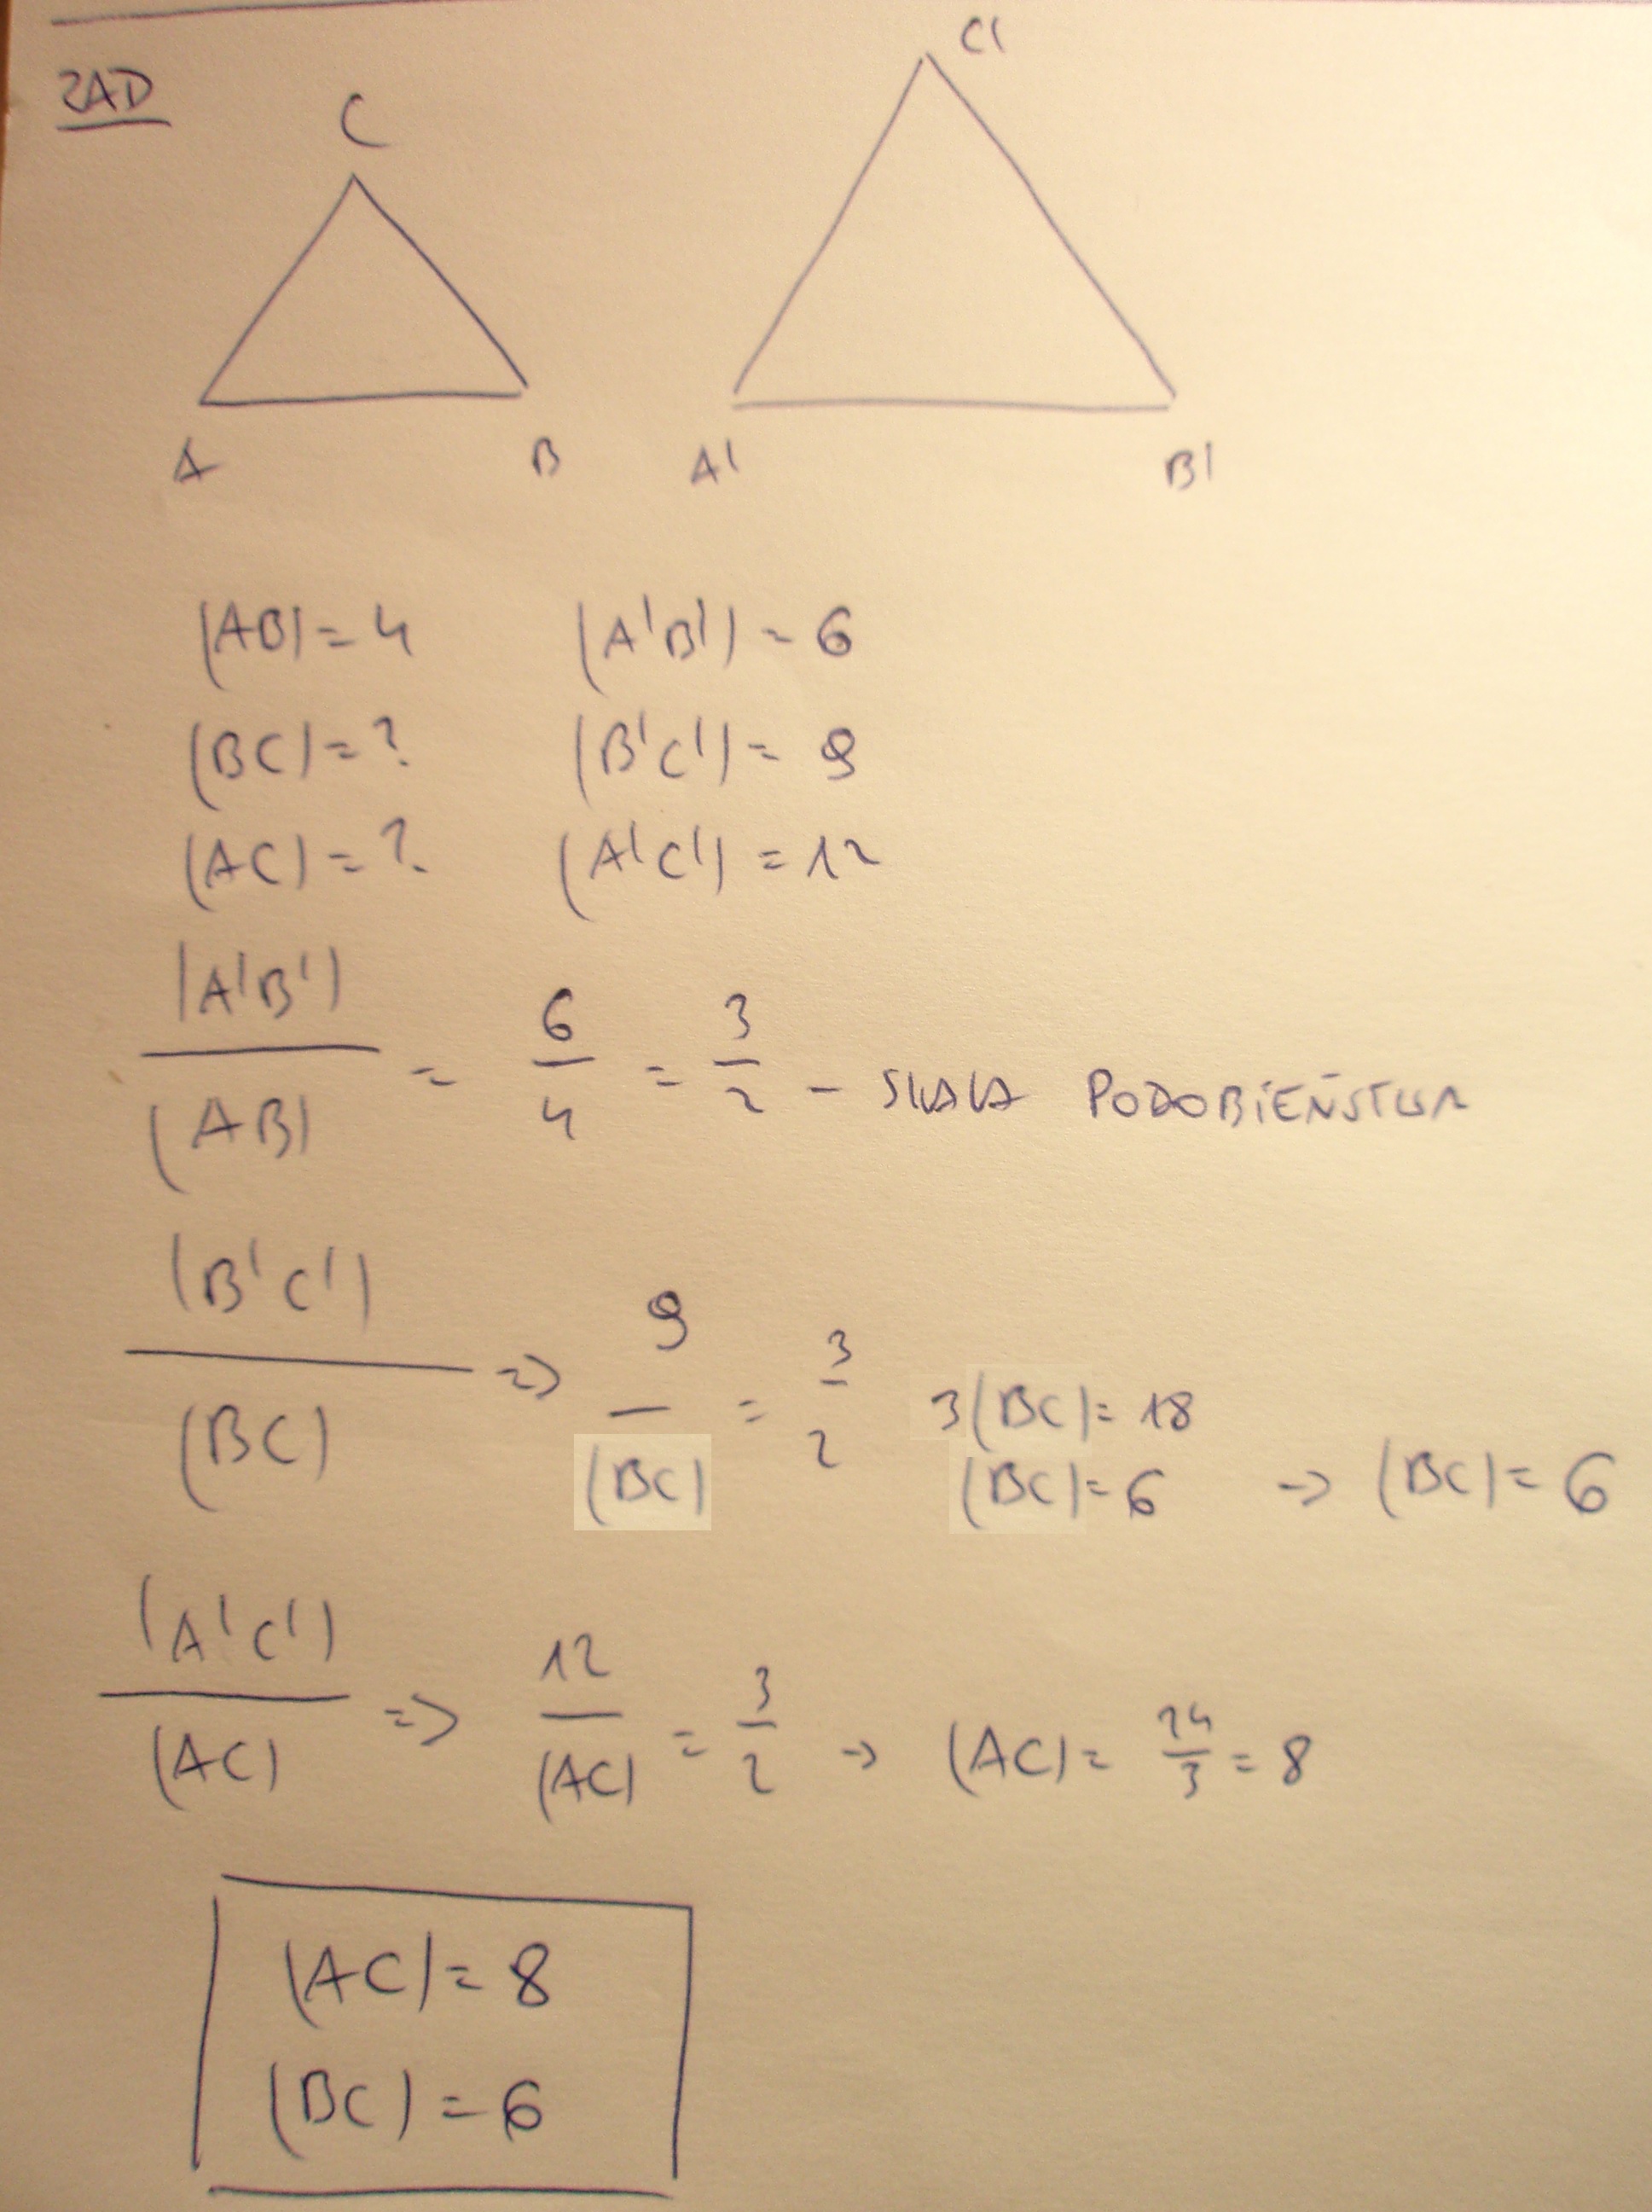 ZAD
C
C'
A B A' B'
|AB|=4 |A'B'|=6
|BC|=? |B'C'|=9
|AC|=? |A'C'|=12
|A'B'|
/
|AB| = 6/4 = 3/2 - SKALA PODOBIEŃSTWA
|B'C'|/|BC| => 9/|BC| = 3/2 3|BC|=18
|BC|=6 → |BC|=6
|A'C'|/|AC| => 12/|AC| = 3/2 → |AC|= 24/3 = 8
|AC|=8
|BC|=6